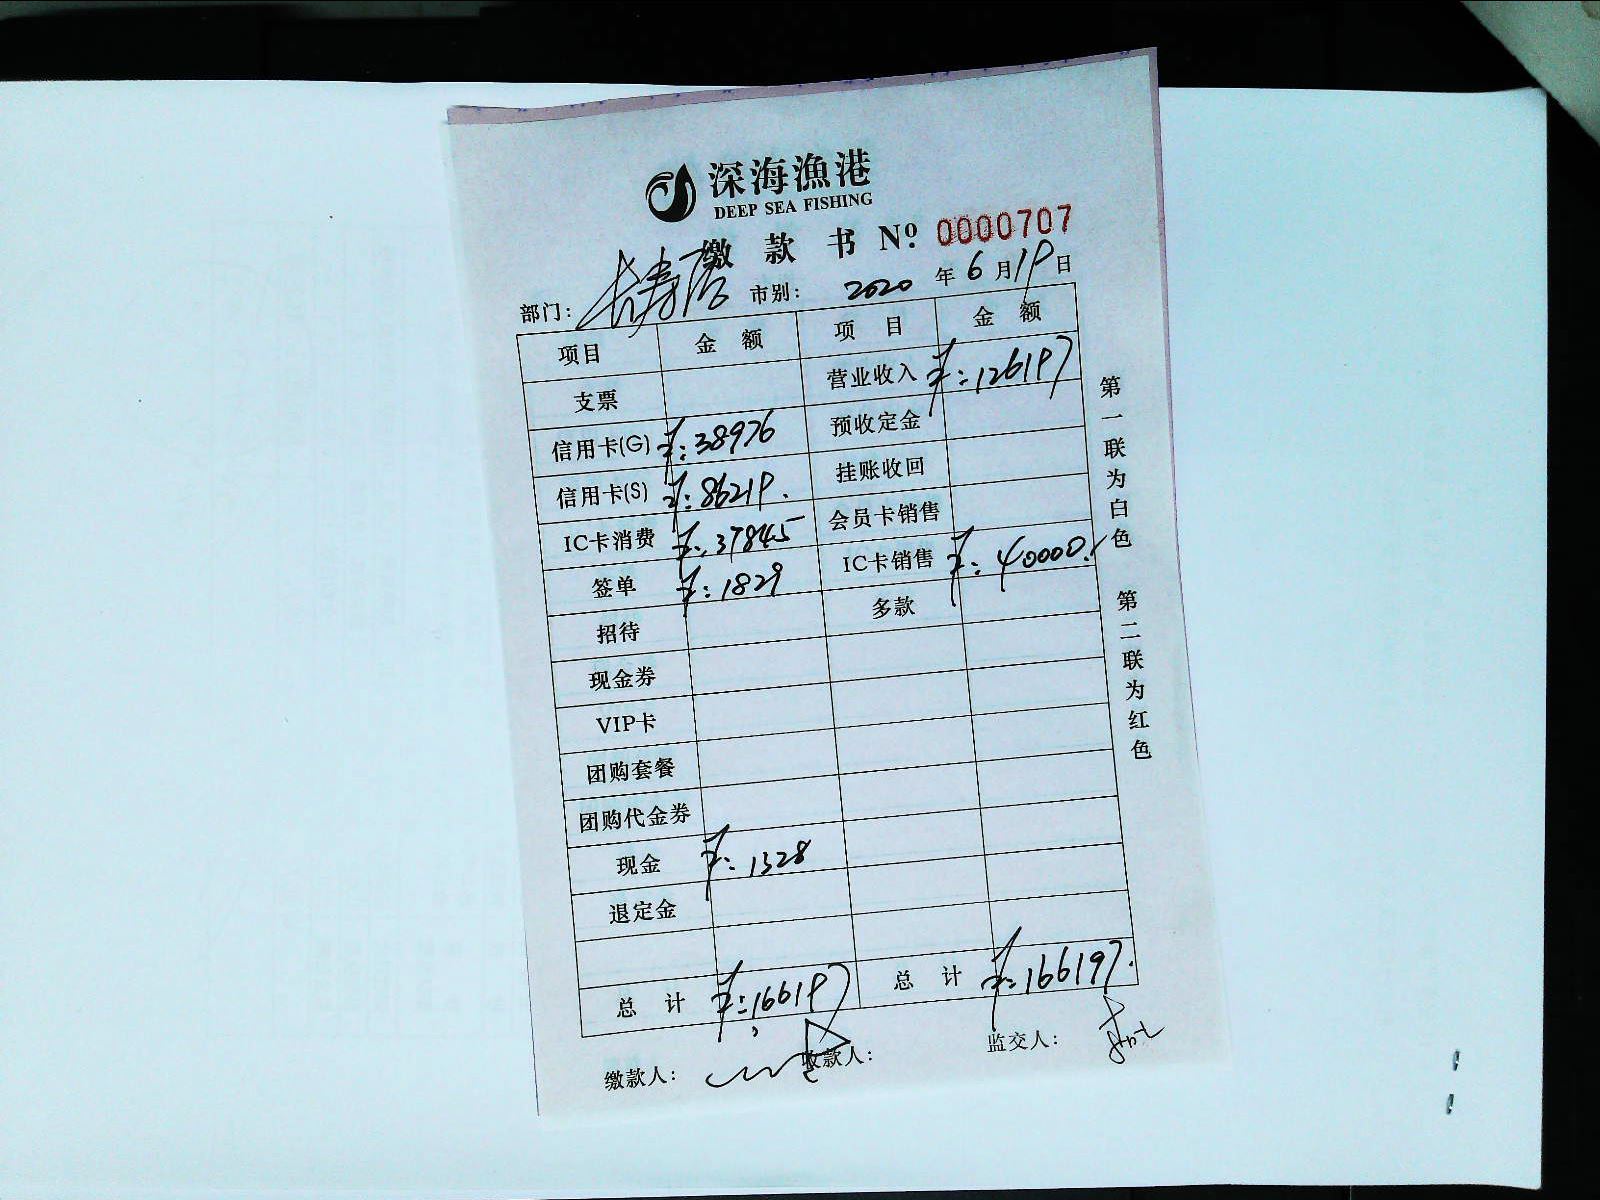 深海渔港
DEEP SEA FISHING
缴款书 Nº 0000707
部门: 长寿店 市别: 2020 年 6 月 19 日
项目 金额 项目 金额
支票 营业收入 ¥:126197
信用卡(G) ¥:38976 预收定金
信用卡(S) ¥:86219. 挂账收回
IC卡消费 ¥:37845 会员卡销售
签单 ¥:1829 IC卡销售 ¥:40000.
招待 多款
现金券
VIP卡
团购套餐
团购代金券
现金 ¥:1328
退定金
总计 ¥:166197 总计 ¥:166197.
缴款人: 收款人: 监交人:
第一联为白色 第二联为红色